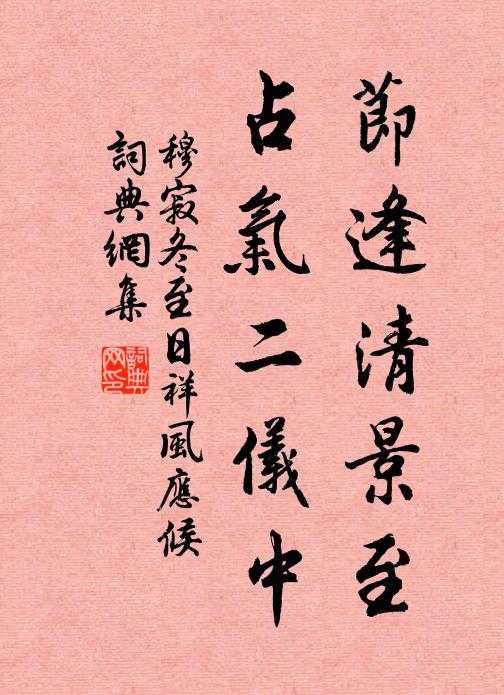 節逢清景至
占氣二儀中
穆寂冬至日祥風應候
詞典網集
詞典网印